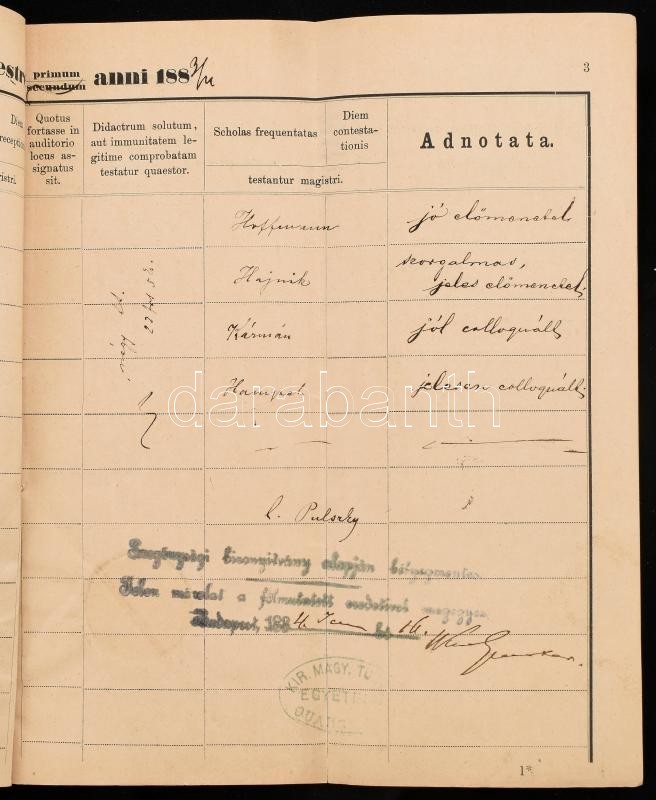 primum
secundum
anni 1883/4
3
Quotus
fortasse in
auditorio
locus as-
signatus
sit.
Didactrum solutum,
aut immunitatem le-
gitime comprobatam
testatur quaestor.
Scholas frequentatas
Diem
contesta-
tionis
testantur magistri.
Adnotata.
Hoffmann
jó előmenetel
Hajnik
szorgalmas,
jeles előmenetel
Kármán
jól colloquált
Hampel
jelesen colloquált
darabanth
Pulszky
Szegénységi bizonyitvány alapján bélyegmentes
Jelen másolat a fölmutatott eredetivel megegyez
Budapest, 1884 16.
KIR. MAGY. TU
EGYETE
1*